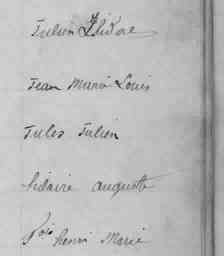 Julien Isidore
Jean Marie Louis
Jules Julien
hilaire auguste
fois henri Marie